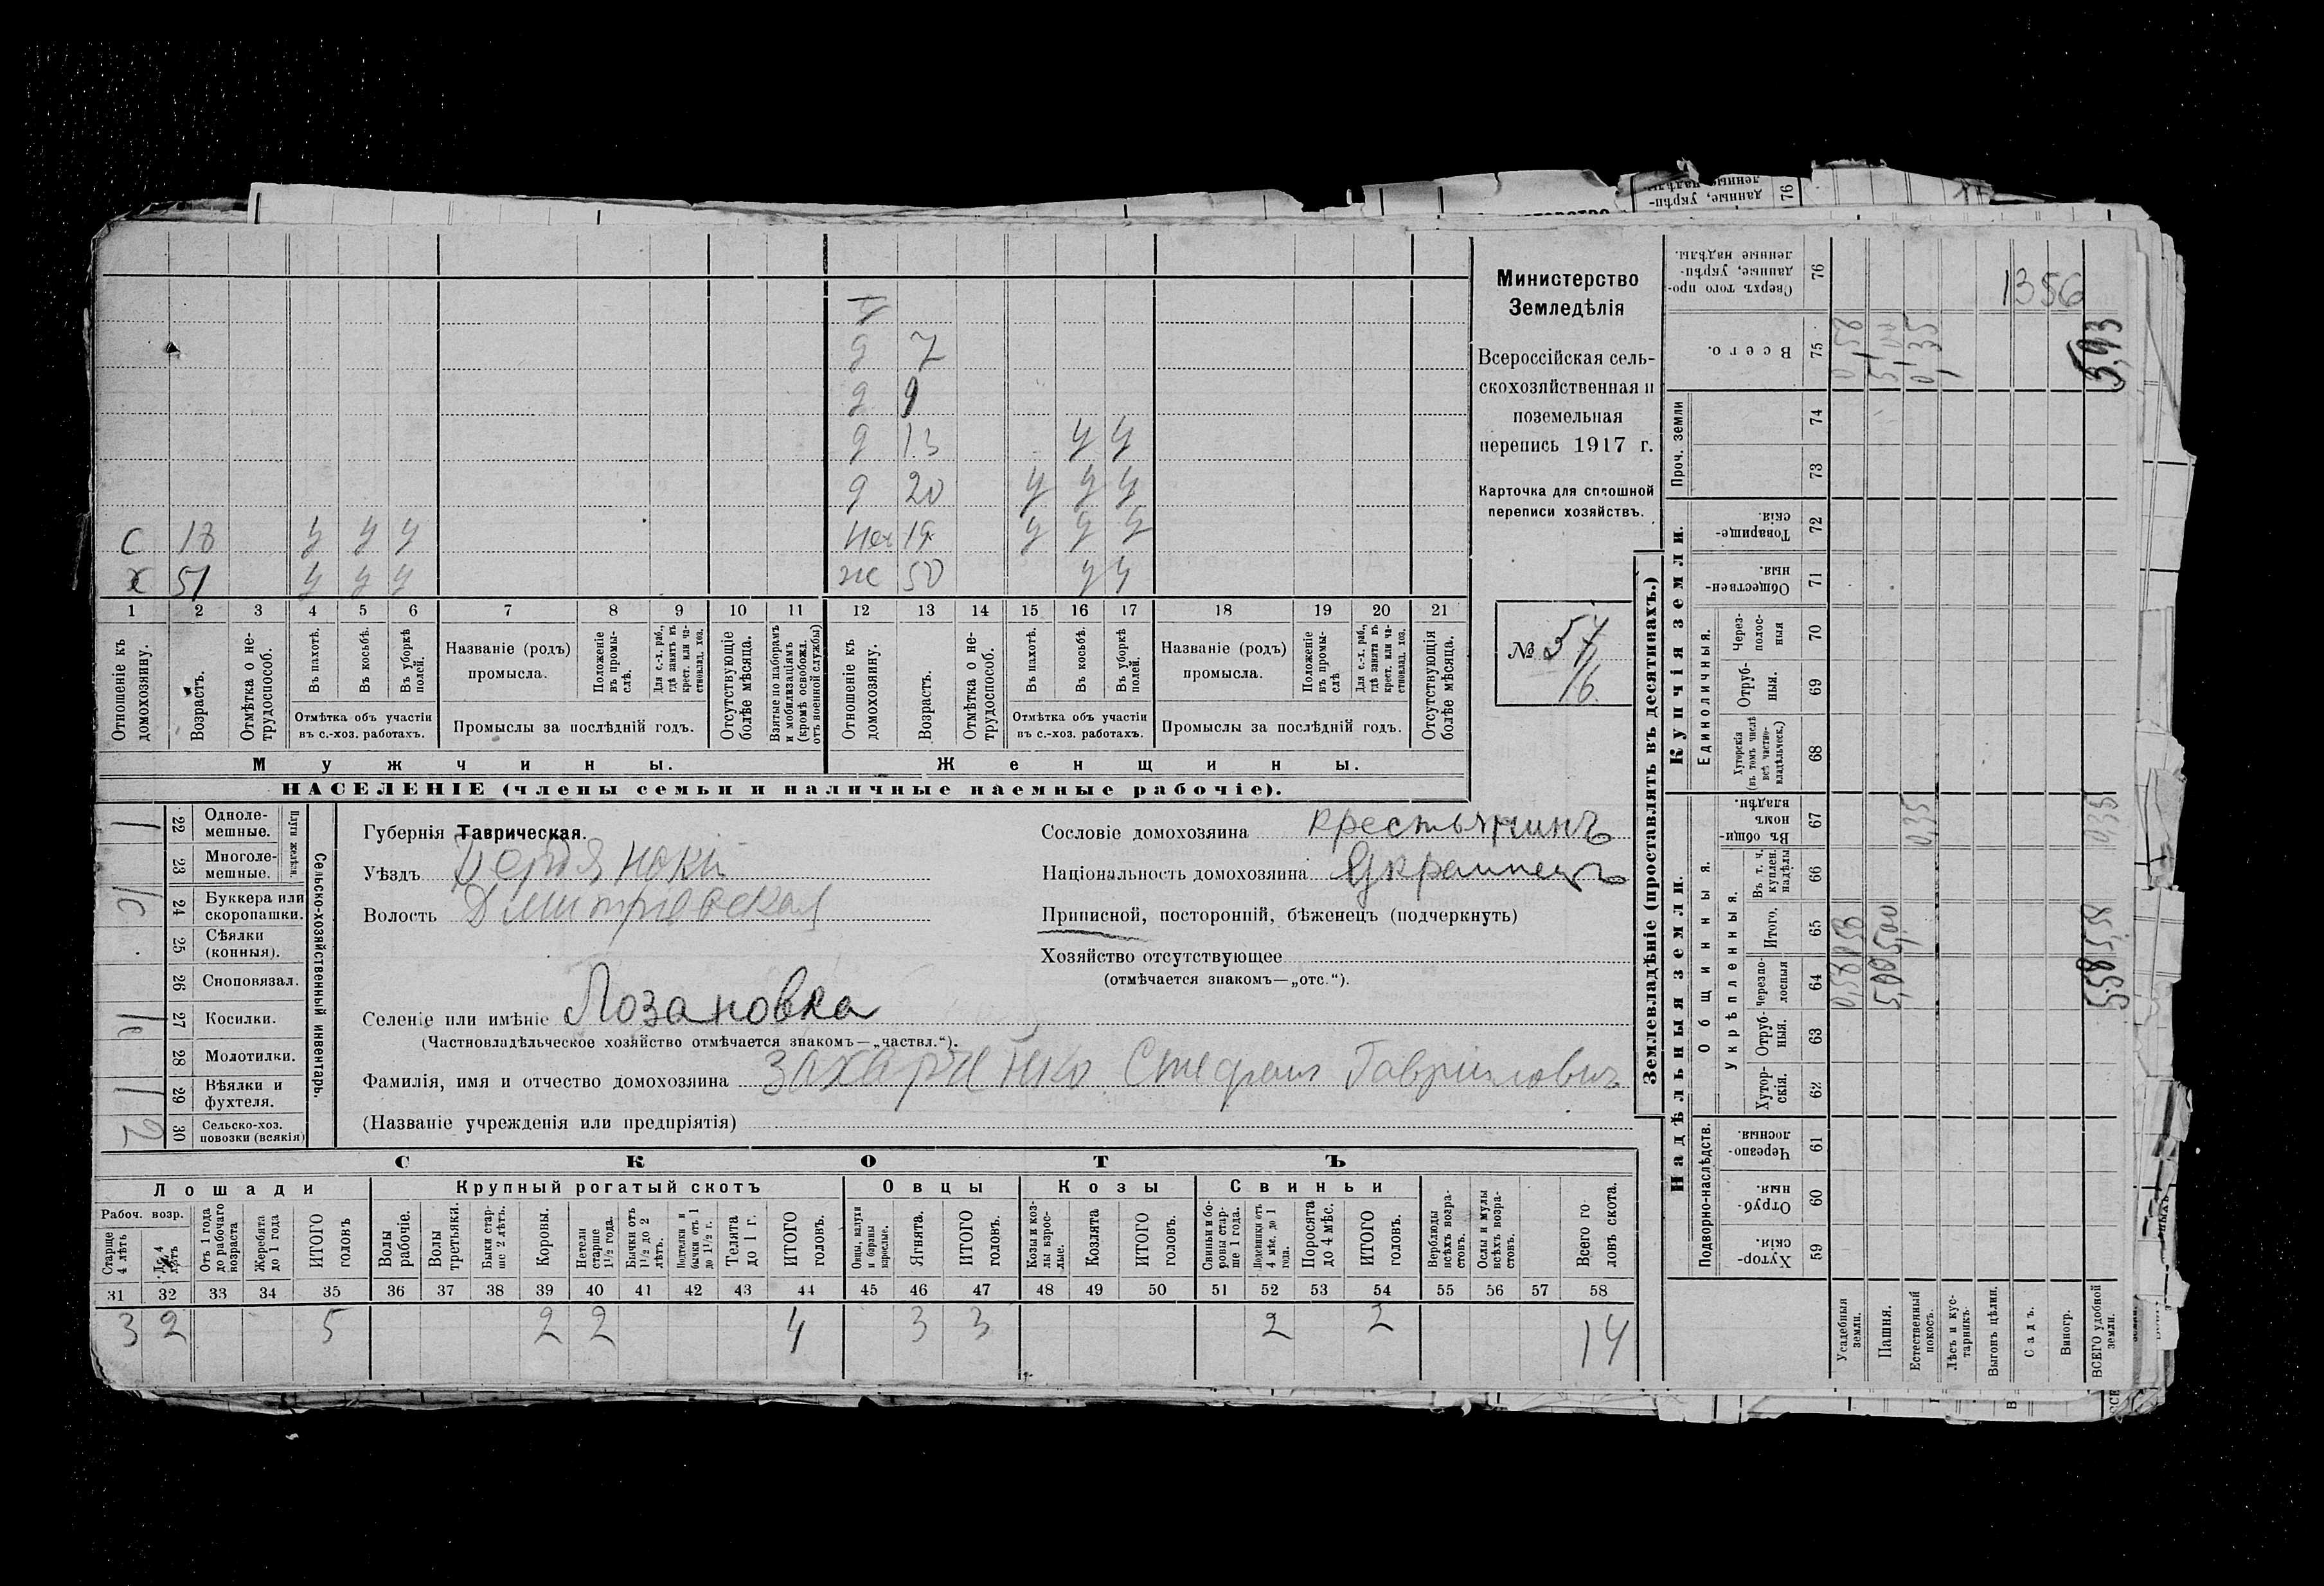 Министерство
Земледѣлія
Всероссійская сель-
скохозяйственная и
поземельная
перепись 1917 г.
Карточка для сплошной
переписи хозяйствъ.
№ 57
16.
д 7
д 9
д 13 у у
д 20 у у у
с 18 у у у 19 у у у
х 51 у у у ж 50 у у
1 2 3 4 5 6 7 8 9 10 11 12 13 14 15 16 17 18 19 20 21
Отношеніе къ домохозяину.
Возрастъ.
Отмѣтка о не-трудоспособ.
Въ пахотѣ.
Въ косьбѣ.
Въ уборкѣ полей.
Отмѣтка объ участіи въ с.-хоз. работахъ.
Названіе (родъ) промысла.
Положеніе въ промы-слѣ.
Для с.-х. раб., гдѣ занятъ въ крест. или ча-стновлад. хоз.
Промыслы за послѣдній годъ.
Отсутствующіе болѣе мѣсяца.
Взятые по наборамъ и мобилизаціямъ (кромѣ освобожд. отъ военной службы)
Отношеніе къ домохозяину.
Возрастъ.
Отмѣтка о не-трудоспособ.
Въ пахотѣ.
Въ косьбѣ.
Въ уборкѣ полей.
Отмѣтка объ участіи въ с.-хоз. работахъ.
Названіе (родъ) промысла.
Положеніе въ промы-слѣ
Для с.-х. раб., гдѣ занята въ крест. или ча-стновлад. хоз.
Промыслы за послѣдній годъ.
Отсутствующія болѣе мѣсяца.
Мужчины. Женщины.
НАСЕЛЕНІЕ (члены семьи и наличные наемные рабочіе).
Сельско-хозяйственный инвентарь.
Плуги желѣзн.
1 22 Одноле-мешные.
23 Многоле-мешные.
1с 24 Буккера или скоропашки.
25 Сѣялки (конныя).
26 Сноповязал.
27 Косилки.
28 Молотилки.
1 29 Вѣялки и фухтеля.
2 30 Сельско-хоз. повозки (всякія)
Губернія Таврическая.
Уѣздъ Бердянскій
Волость Дмитріевская
Селеніе или имѣніе Лозановка
(Частновладѣльческое хозяйство отмѣчается знакомъ—„частвл.“).
Фамилія, имя и отчество домохозяина Захарченко Стефанъ Гавриловичъ
(Названіе учрежденія или предпріятія)
Сословіе домохозяина крестьянинъ
Національность домохозяина Украинецъ
Приписной, посторонній, бѣженецъ (подчеркнуть)
Хозяйство отсутствующее
(отмѣчается знакомъ—„отс.“).
СКОТЪ
Лошади Крупный рогатый скотъ Овцы Козы Свиньи
Рабоч. возр.
Старше 4 лѣтъ
До 4 лѣтъ
Отъ 1 года до рабочаго возраста
Жеребята до 1 года
ИТОГО головъ
Волы рабочіе.
Волы третьяки.
Быки стар-ше 2 лѣтъ.
Коровы.
Нетели старше 1½ года.
Бычки отъ 1½ до 2 лѣтъ.
Подтелки и бычки отъ 1 до 1½ г.
Телята до 1 г.
ИТОГО головъ.
Овцы, валухи и бараны взрослые.
Ягнята.
ИТОГО головъ.
Козы и коз-лы взрос-лые.
Козлята
ИТОГО головъ.
Свиньи и бо-ровы стар-ше 1 года.
Подсвинки отъ 4 мѣс. до 1 года.
Поросята до 4 мѣс.
ИТОГО головъ.
Верблюды всѣхъ возра-стовъ.
Ослы и мулы всѣхъ возра-стовъ.
Всего го-ловъ скота.
31 32 33 34 35 36 37 38 39 40 41 42 43 44 45 46 47 48 49 50 51 52 53 54 55 56 57 58
3 2 5 2 2 4 3 3 2 2 14
Землевладѣніе (проставлять въ десятинахъ.)
Надѣльныя земли. Купчія земли. Проч. земли
Подворно-наслѣдств.
Общинныя.
Укрѣпленныя.
Единоличныя.
Хутор-скія. 59
Отруб-ныя. 60
Черезпо-лосныя. 61
Хутор-скія. 62
Отруб-ныя. 63
Черезпо-лосныя 64
Итого. 65
Въ т. ч. куплен. надѣлы 66
Въ общин-номъ владѣн. 67
Хуторскія (въ томъ числѣ всѣ частно-владѣльческ.) 68
Отруб-ныя. 69
Через-полос-ныя 70
Обществен-ныя. 71
Товарище-скія. 72
73
74
Всего. 75
Сверхъ того про-данные, укрѣп-ленные надѣлы. 76
Усадебныя земли. 0,58 0,58 0,58
Пашня. 5,00 5,00 5,00
Естественный покосъ. 0,35 0,35
Лѣсъ и кус-тарникъ.
Выгонъ цѣлин.
Садъ.
Виногр.
ВСЕГО удобной земли. 5,58 5,58 0,35 5,93
1356